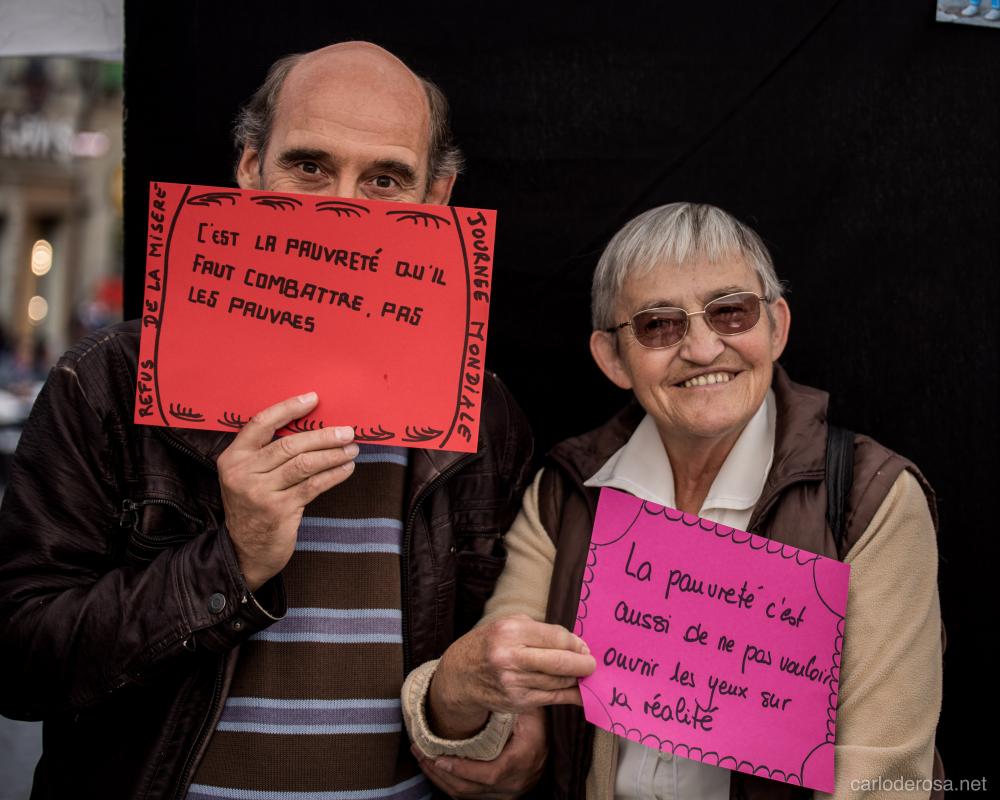 REFUS DE LA MISERE
C'EST LA PAUVRETÉ QU'IL
FAUT COMBATTRE, PAS
LES PAUVRES
JOURNÉE MONDIALE
La pauvreté c'est
aussi de ne pas vouloir
ouvrir les yeux sur
sa réalité
carloderosa.net